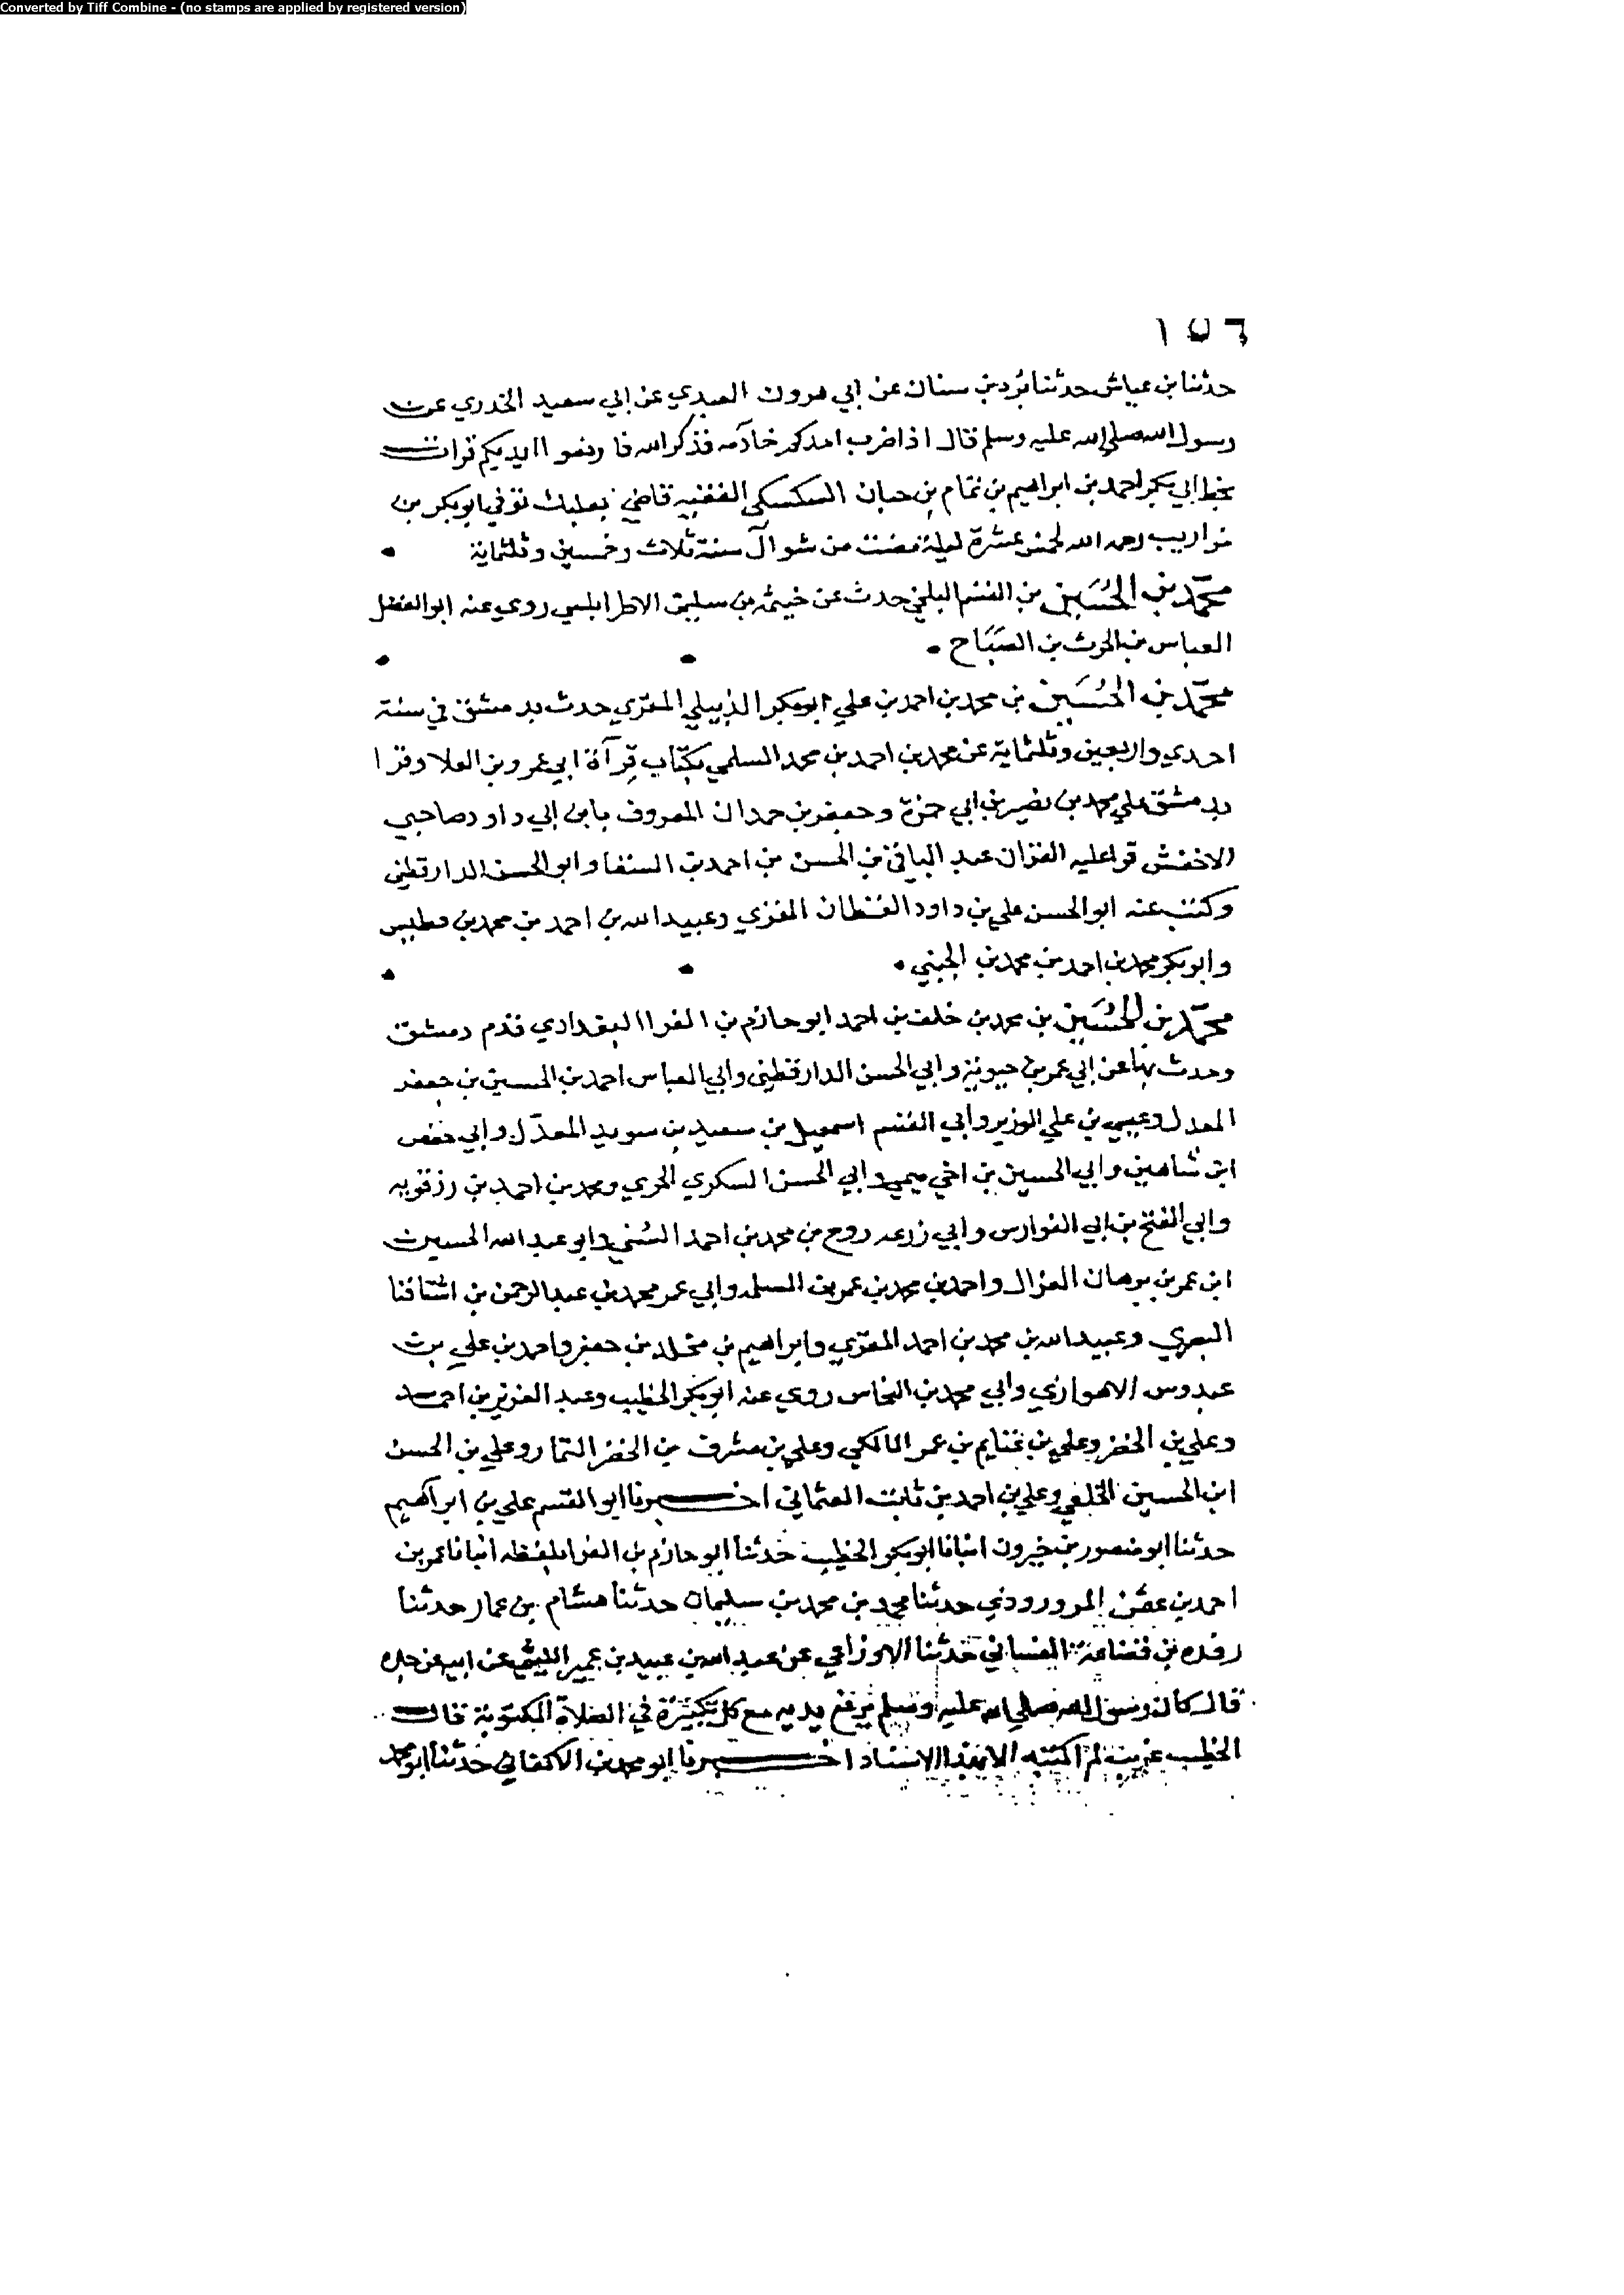 Converted by Tiff Combine - (no stamps are applied by registered version)
١٥٦
حدثنا بن عياش حدثنا برد بن سنان عن ابي هرون العبدي عن ابي سعيد الخدري عن
رسول الله صلى الله عليه وسلم قال اذا ضرب احدكم خادمه فذكر الله فارفعوا ايديكم قرات
بخط ابي بكر احمد بن ابراهيم بن تمام بن حبان السكسكي الفقيه قاضي بعلبك توفي ابو بكر بن
خواريب رحمه الله لخمس عشرة ليلة مضت من شوال سنة ثلاث وخمسين وثلثماية
محمد بن الحسين بن القسم البلخي حدث عن خيثمه بن سليمن الاطرابلسي روي عنه ابو الفضل
العباس بن الحرث بن الصباح
محمد بن الحسين بن محمد بن احمد بن علي ابو بكر الذبيلي المقري حدث بدمشق في سنة
احدي واربعين وثلثماية عن محمد بن احمد بن محمد السلمي بكتاب قرآة ابي عمرو بن العلا وقرا
بدمشق علي محمد بن نصير بن ابي حمزة وجعفر بن حمدان المعروف بابن ابي داود صاحبي
الاخفش قرا عليه القران عبد الباقي بن الحسن بن احمد بن السقا وابو الحسن الدارقطني
وكتب عنه ابو الحسن علي بن داود القطان المقري وعبيد الله بن احمد بن محمد بن فطيس
وابو بكر محمد بن احمد بن محمد بن الجبني
محمد بن الحسين بن محمد بن خلف بن احمد ابو حازم بن الفرا البغدادي قدم دمشق
وحدث بها عن ابي عمر بن حيوية وابي الحسن الدارقطني وابي العباس احمد بن الحسين بن جعفر
المعدل وعيسي بن علي الوزير وابي القسم اسمعيل بن سعيد بن سويد المعدل وابي حفص
ابن شاهين وابي الحسين بن اخي ميمي وابي الحسن السكري الحربي ومحمد بن احمد بن رزقويه
وابي الفتح بن ابي الفوارس وابي زرعه روح بن محمد بن احمد السني وابو عبد الله الحسين
ابن عمر بن برهان الغزال واحمد بن محمد بن عمر بن المسلمه وابي عمر محمد بن عبد الرحمن بن اشتافنا
البصري وعبيد الله بن محمد بن احمد المقري وابراهيم بن مخلد بن جعفر واحمد بن علي بن
عبدوس الاهوازي وابي محمد بن النحاس روي عنه ابو بكر الخطيب وعبد العزيز بن احمد
وعلي بن الخضر وعلي بن غنايم بن عمر المالكي وعلي بن مشرف بن الخضر التمار وعلي بن الحسن
ابن الحسين الخلعي وعلي بن احمد بن ثابت العثماني اخبرنا ابو القسم علي بن ابراهيم
حدثنا ابو منصور بن خيرون انبانا ابو بكر الخطيب حدثنا ابو حازم بن الفرا بلفظه انبانا عمر بن
احمد بن عثمن المروروذي حدثنا محمد بن محمد بن سليمان حدثنا هشام بن عمار حدثنا
رفده بن قضاعة الغساني حدثنا الاوزاعي عن عبد الله بن عبيد بن عمير الليثي عن ابيه عن جده
قال كان رسول الله صلي الله عليه وسلم يرفع يديه مع كل تكبيرة في الصلاة المكتوبة قال
الخطيب غريب لم اكتبه الا بهذا الاسناد اخبرنا ابو محمد بن الاكفاني حدثنا ابو محمد